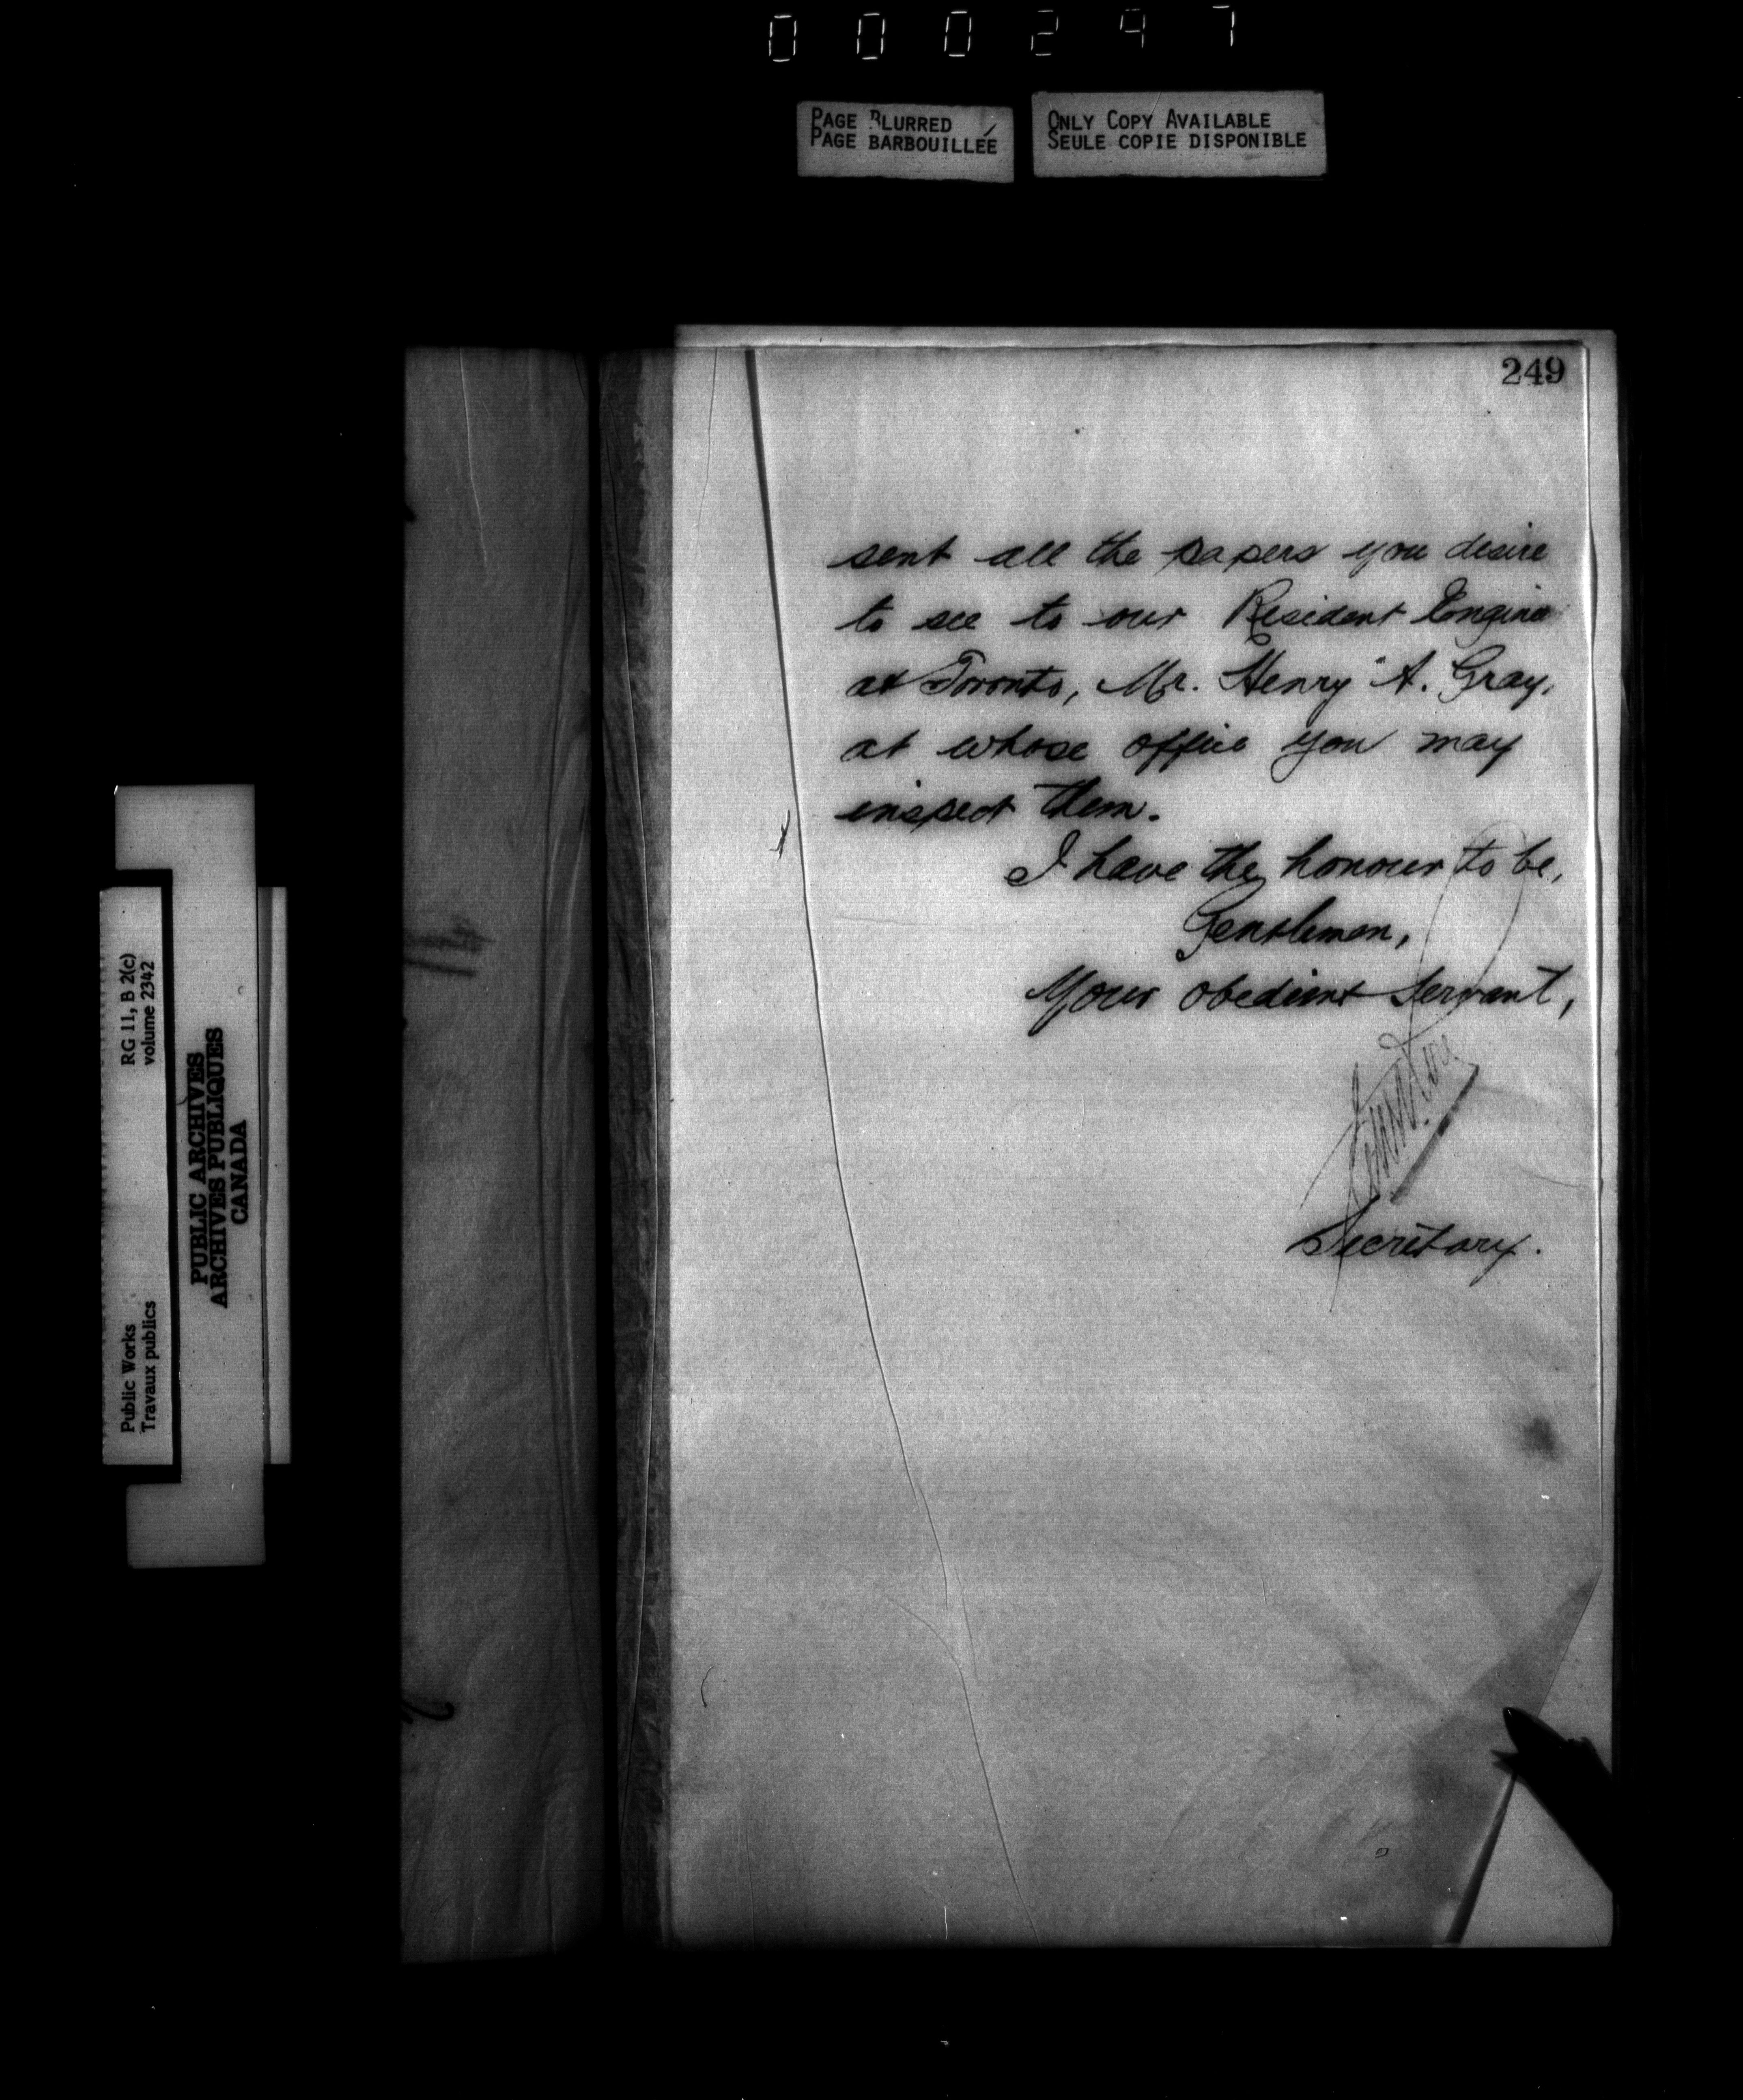 000297
PAGE BLURRED
PAGE BARBOUILLÉE
ONLY COPY AVAILABLE
SEULE COPIE DISPONIBLE
249
sent all the papers you desire
to see to our Resident Engineer
at Toronto, Mr. Henry A. Gray,
at whose office you may
inspect them.
I have the honour to be,
Gentlemen,
Your obedient Servant,
Secretary.
RG 11, B 2(c)
volume 2342
Public Works
Travaux publics
PUBLIC ARCHIVES
ARCHIVES PUBLIQUES
CANADA